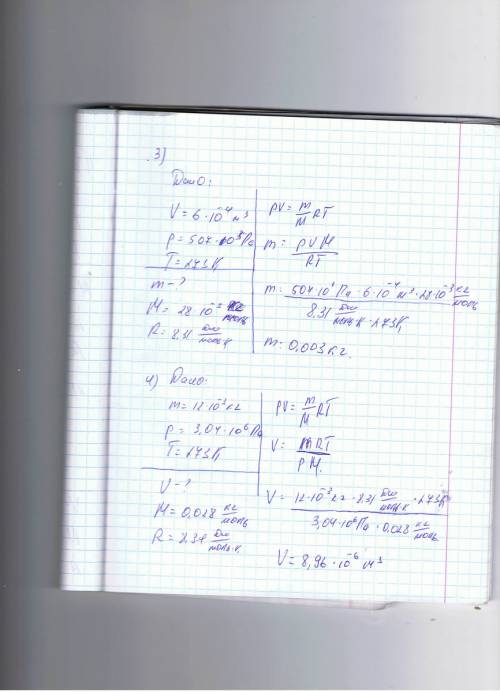 3]
Дано:
V = 6·10⁻⁴ м³
p = 507·10³ Па
T = 273 К
m - ?
M = 28·10⁻³ кг/моль
R = 8,31 Дж/моль·К
pV = m/M RT
m = pVM/RT
m = 507·10³ Па · 6·10⁻⁴ м³ · 28·10⁻³ кг/моль / 8,31 Дж/моль·К · 273К
m = 0,003 кг.
4) Дано:
m = 12·10⁻³ кг
p = 3,04·10⁶ Па
T = 273 К
V - ?
M = 0,028 кг/моль
R = 8,31 Дж/моль·К
pV = m/M RT
V = mRT/pM.
V = 12·10⁻³ кг · 8,31 Дж/моль·К · 273К / 3,04·10⁶ Па · 0,028 кг/моль
V = 8,96·10⁻⁶ м³